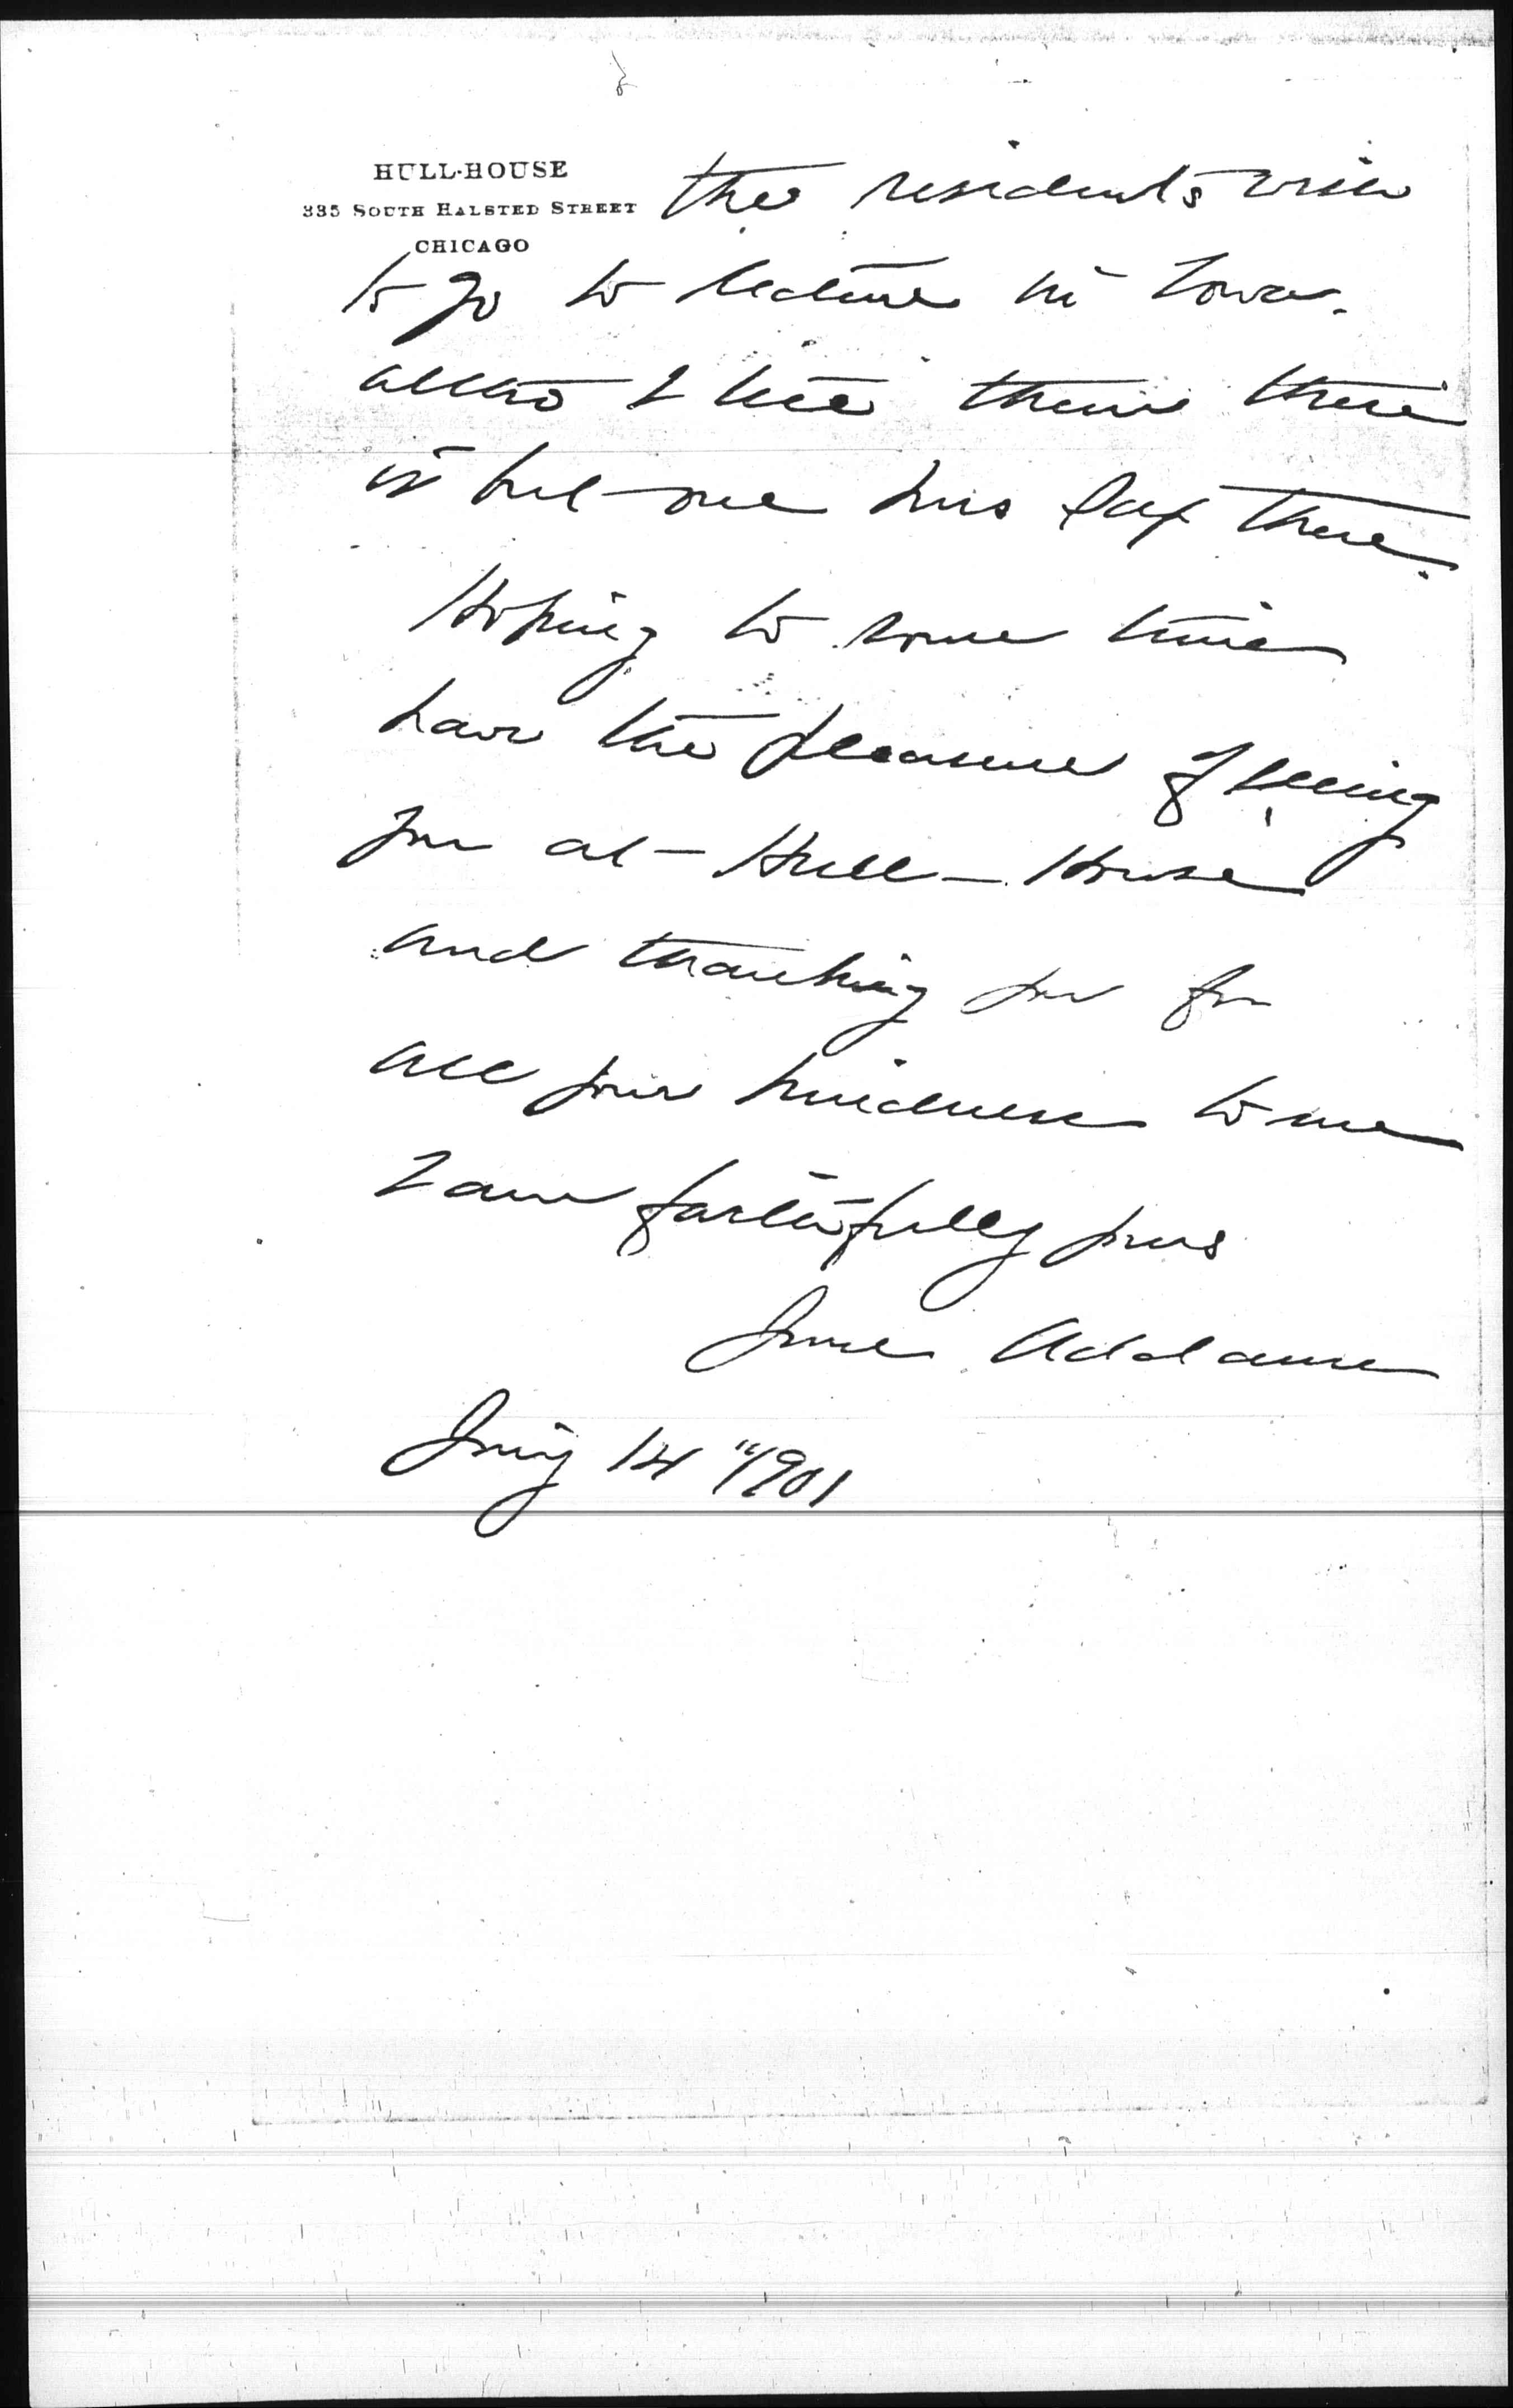 HULL-HOUSE
335 SOUTH HALSTED STREET
CHICAGO
the residents wish
to go to lecture in Iowa.
altho I tell them there
is but one Mrs Day there.
Hoping to some time
have the pleasure of seeing
you at Hull-House
and thanking you for
all your kindness to me
I am faithfully yours
Jane Addams
14" 1901